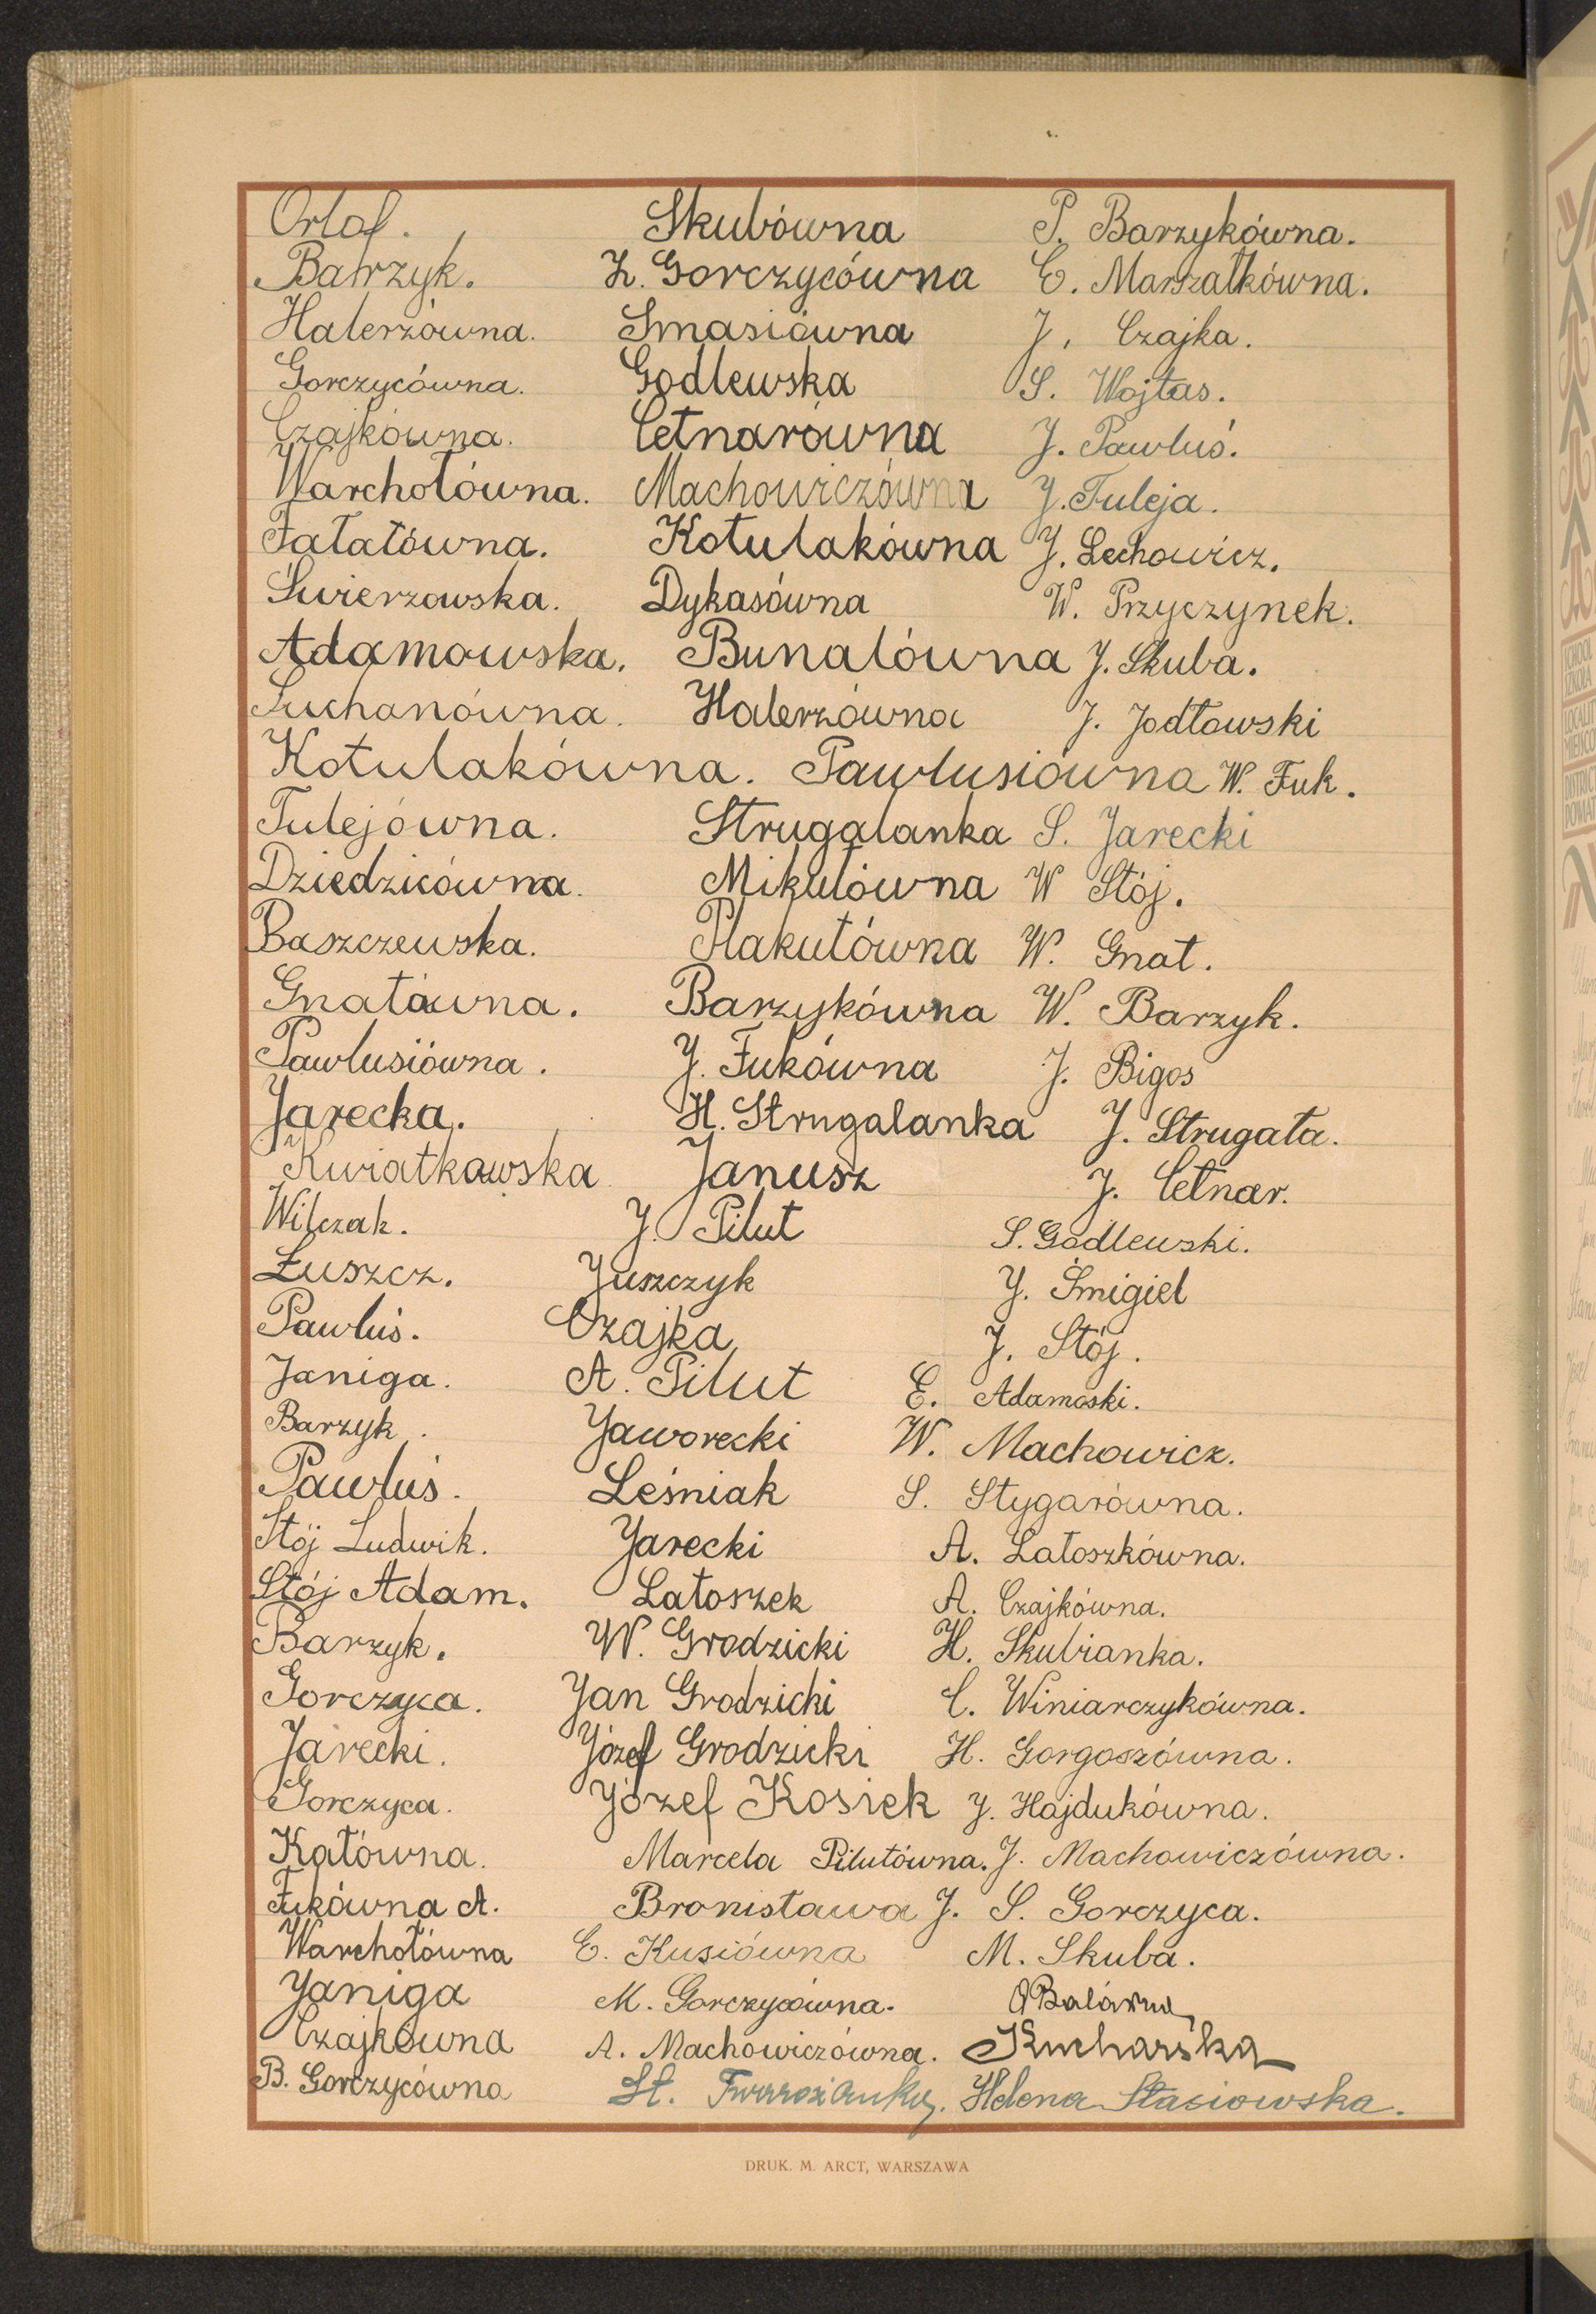 Orlof. Skubówna P. Barzykówna.
Barzyk. Z. Gorczycówna E. Marszałkówna.
Halerzówna. Smasiówna J. Czajka.
Gorczycówna. Godlewska S. Wojtas.
Czajkówna. Cetnarówna J. Pawluś.
Warchołówna. Machowiczówna J. Tuleja.
Fałatówna. Kotulakówna J. Lechowicz.
Świerzowska. Dykasówna W. Przyczynek.
Adamowska. Bunalówna J. Skuba.
Suchanówna. Halerzówna J. Jodłowski
Kotulakówna. Pawlusiówna W. Fuk.
Tulejówna. Strugalanka S. Jarecki
Dziedzicówna. Mikulówna W Stój.
Baszczewska. Płakutówna W. Gnat.
Gnatówna. Barzykówna W. Barzyk.
Pawlusiówna. J. Fukówna J. Bigos
Jarecka. H. Strugalanka J. Strugała.
Kwiatkowska Janusz J. Cetnar.
Wilczak. J. Pilut S. Godlewski.
Łuszcz. Juszczyk J. Śmigiel
Pawluś. Czajka J. Stój.
Janiga. A. Pilut E. Adamoski.
Barzyk. Jaworecki W. Machowicz.
Pawluś. Leśniak S. Stygarówna.
Stój Ludwik. Jarecki A. Latoszkówna.
Stój Adam. Latoszek A. Czajkówna.
Barzyk. W. Grodzicki H. Skubianka.
Gorczyca. Jan Grodzicki C. Winiarczykówna.
Jarecki. Józef Grodzicki H. Gorgoszówna.
Gorczyca. Józef Kosiek J. Hajdukówna.
Kątówna. Marcela Pilutówna. J. Machowiczówna.
Fukówna A. Bronisława J. S. Gorczyca.
Warchołówna E. Kusiówna M. Skuba.
Janiga M. Gorczycówna. Balówna
Czajkówna A. Machowiczówna. Kucharska
B. Gorczycówna St. Helena Stasiowska.
DRUK. M. ARCT, WARSZAWA